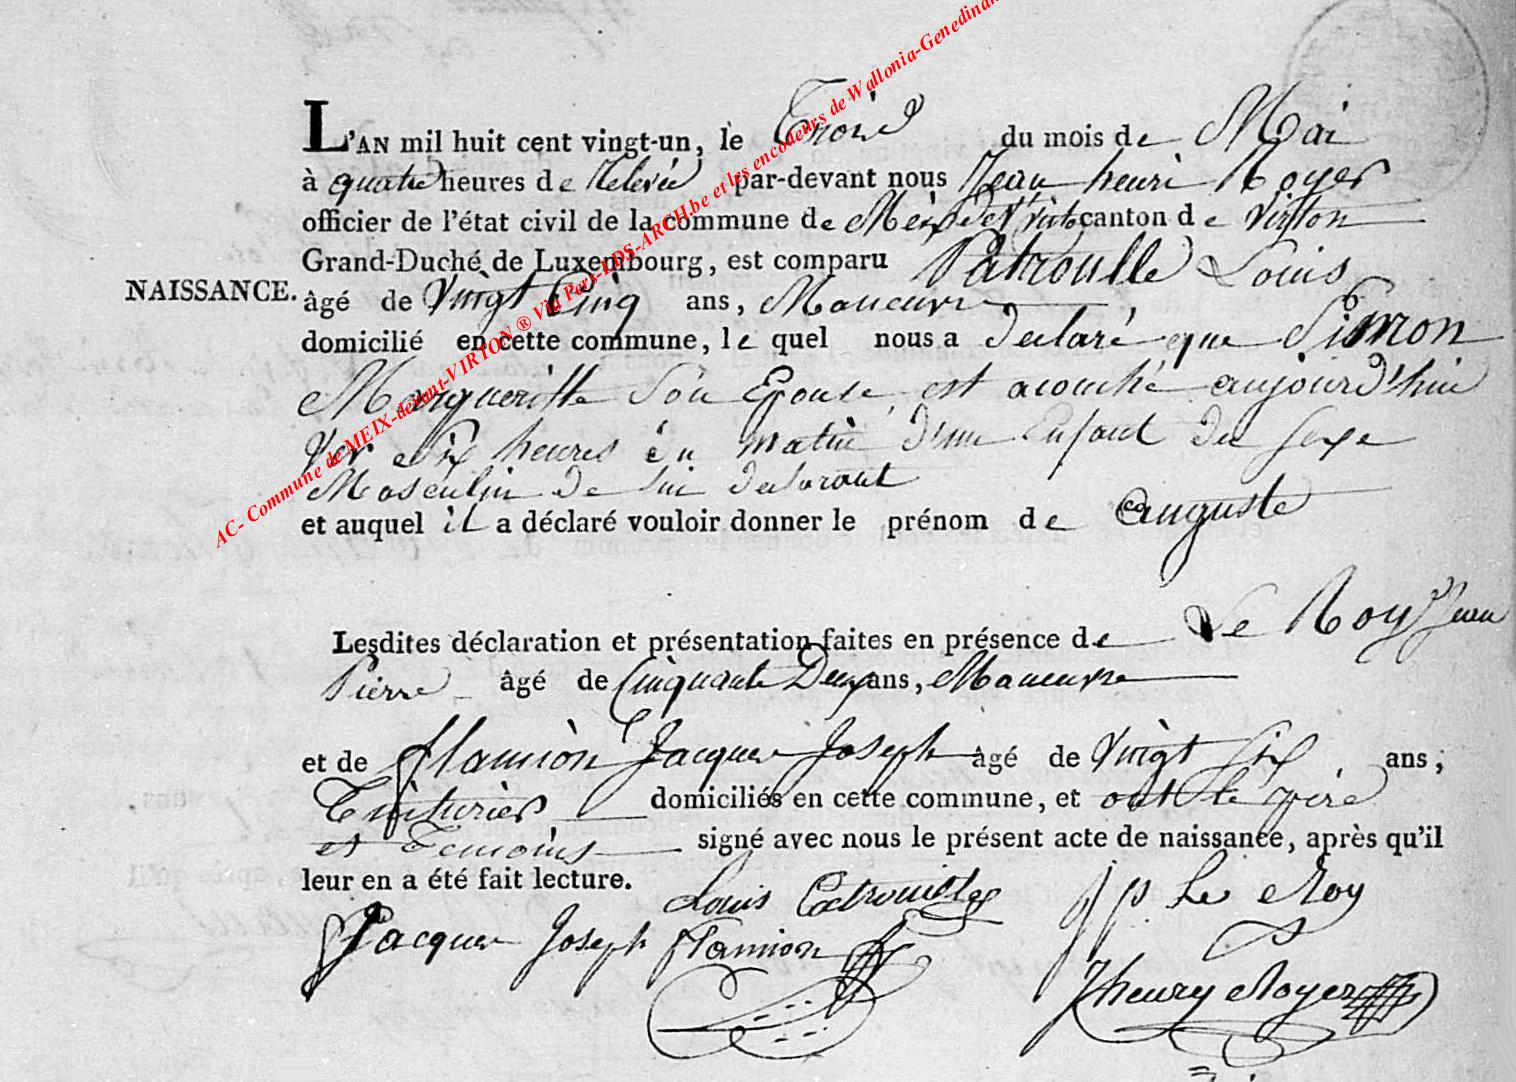 L'AN mil huit cent vingt-un, le Trois du mois de Mai
à quatre heures de Relevée par-devant nous Jean henri Royer
officier de l'état civil de la commune de Meix Dt Virton canton de Virton
Grand-Duché de Luxembourg, est comparu Patrouille Louis
NAISSANCE. âgé de Vingt Cinq ans, Maneuvre
domicilié en cette commune, le quel nous a declaré que Simon
Margueritte Son Epouse, est acouché aujourd'hui
Ver Six heures du matin d'un Enfant du Sexe
Masculin de lui declarant
et auquel il a déclaré vouloir donner le prénom de auguste
Lesdites déclaration et présentation faites en présence de Le Roy Jean
Pierre âgé de Cinquante Deux ans, Maneuvre
et de flamion Jacques Joseph âgé de Vingt Six ans,
Tinturier domiciliés en cette commune, et ont le père
et Temoins signé avec nous le présent acte de naissance, après qu'il
leur en a été fait lecture.
Louis Patrouille
jp Le Roy
Jacques Joseph flamion
Jhenry Royer
AC- Commune de MEIX-devant-VIRTON ® Via Pers-LDS-ARCH.be et les encodeurs de Wallonia-Genedinan